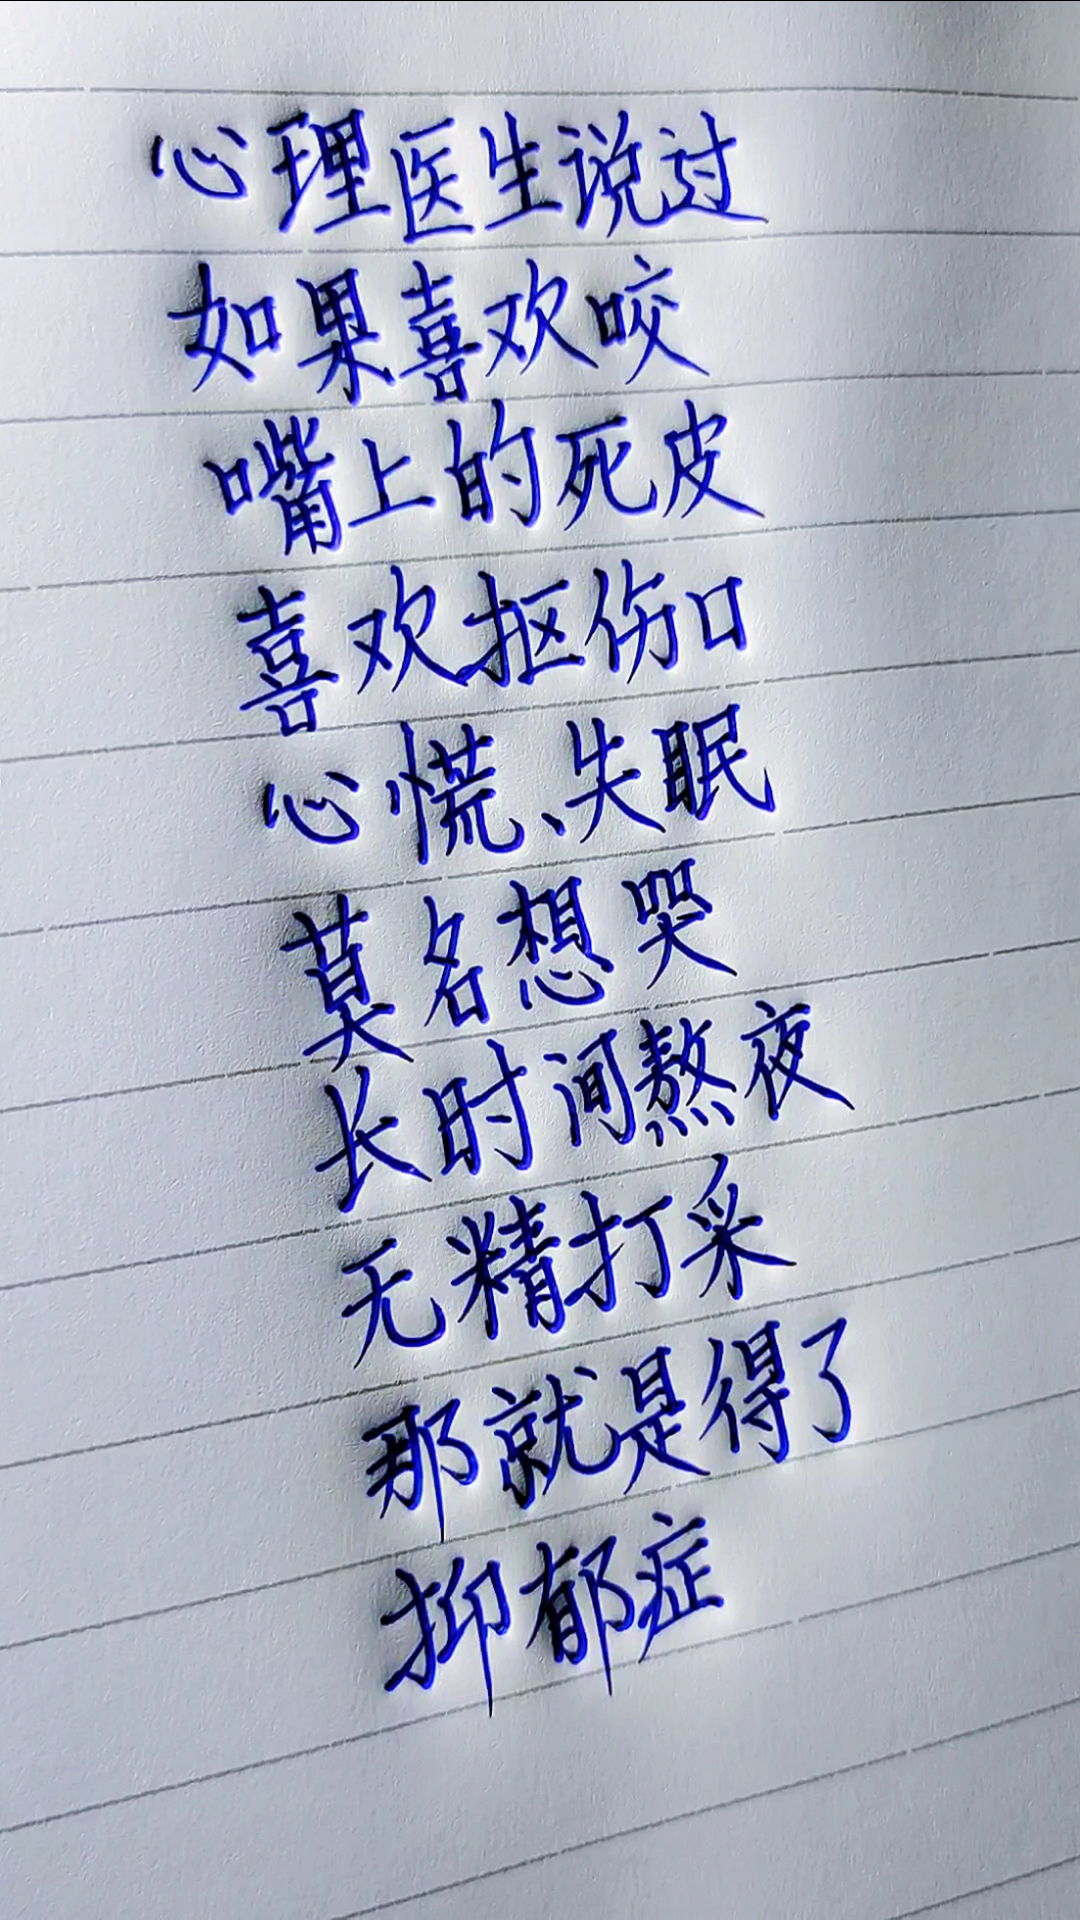 心理医生说过
如果喜欢咬
嘴上的死皮
喜欢抠伤口
心慌、失眠
莫名想哭
长时间熬夜
无精打采
那就是得了
抑郁症